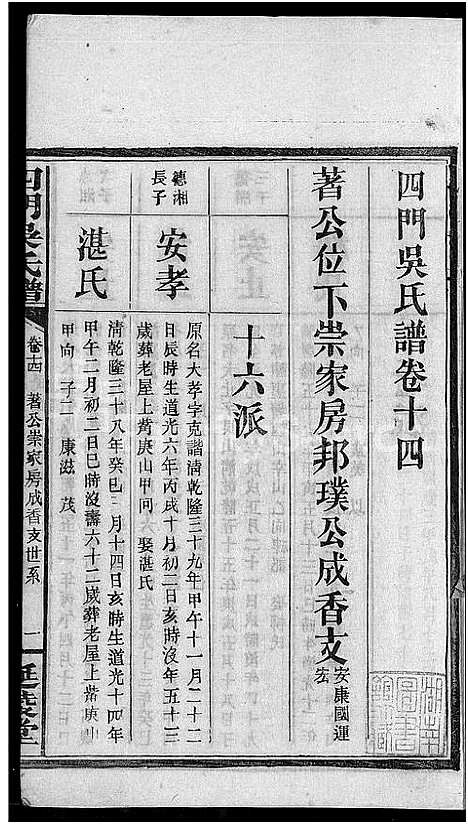 四門吳氏譜卷十四
著公位下崇家房邦璞公成香支
安康國運
宏
十六派
德湘
長子
安孝
原名大孝字克諧清乾隆三十九年甲午十一月二十二
日辰時生道光六年丙戌十月初二日亥時沒年五十三
歲葬老屋上觜庚山甲向 娶湛氏
湛氏
清乾隆三十八年癸巳 月十四日亥時生道光十四年
甲午二月初二日巳時沒壽六十二歲葬老屋上觜庚山
甲向 子二 康滋 茂
四門吳氏譜
卷十四
著公崇家房成香支世系
一
湖南
圖書